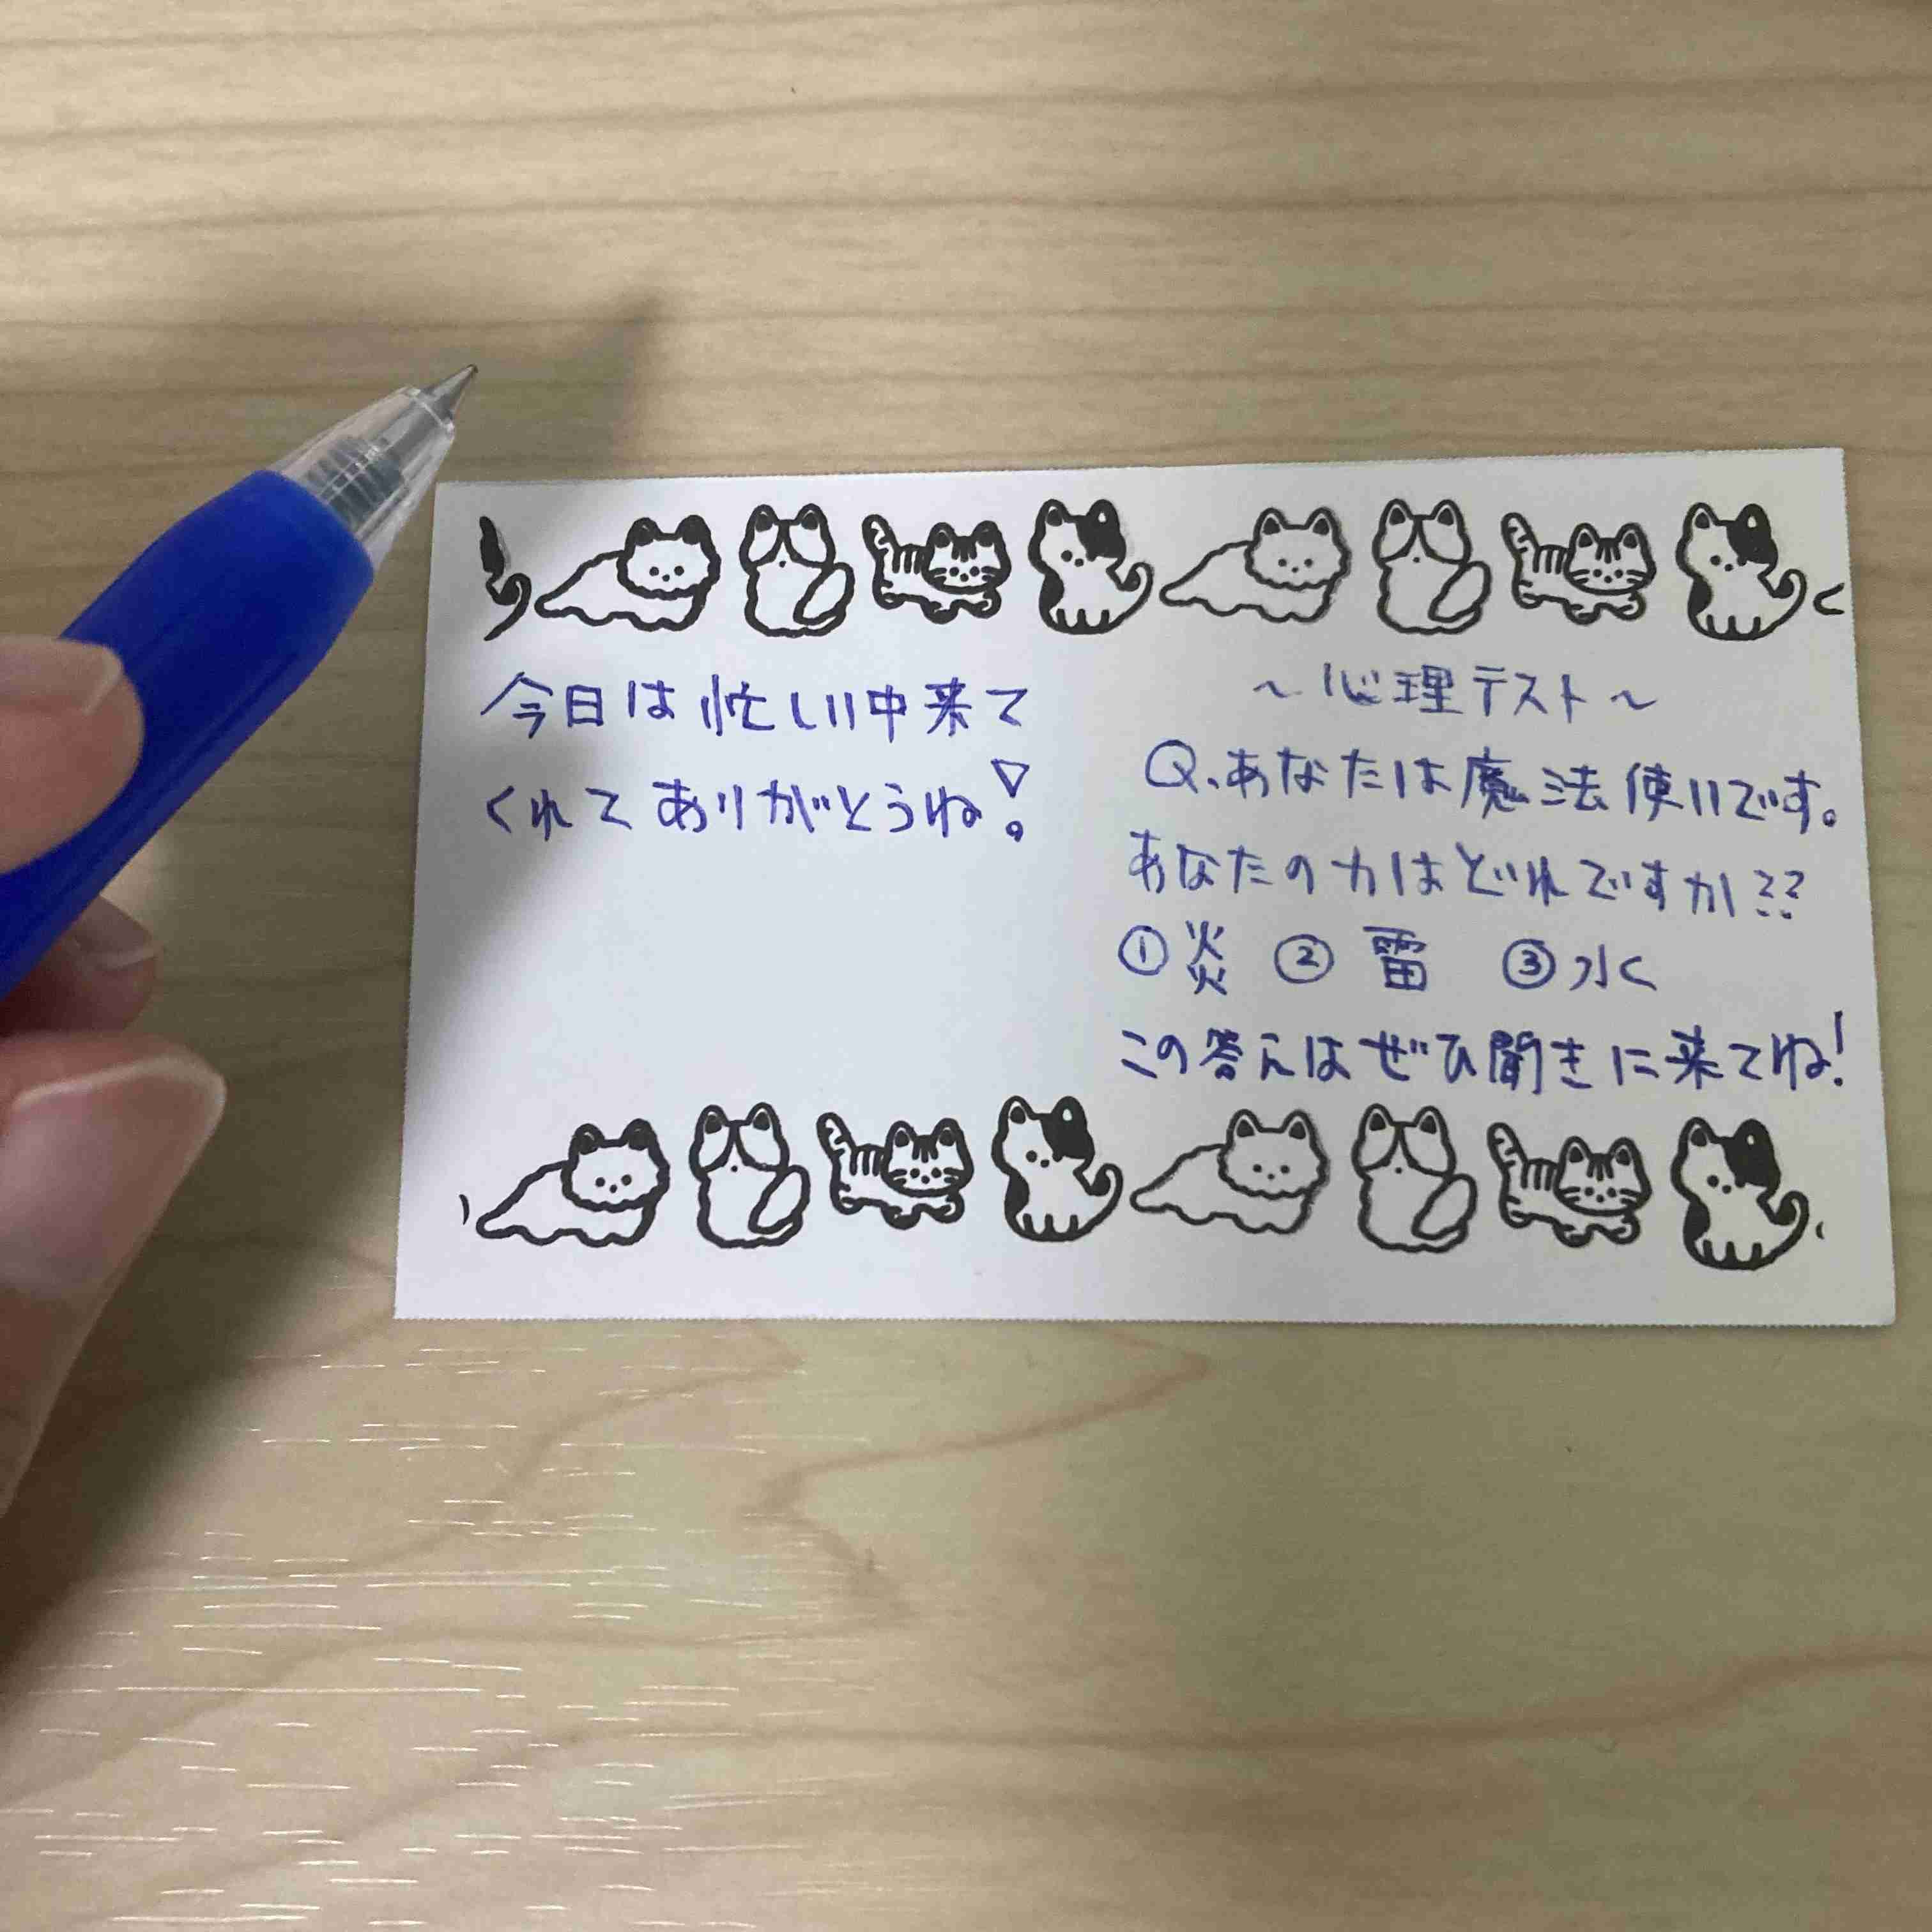 今日は忙しい中来て
くれてありがとうね!
〜心理テスト〜
Q.あなたは魔法使いです。
あなたの力はどれですか??
①炎 ②雷 ③水
この答えはぜひ聞きに来てね!